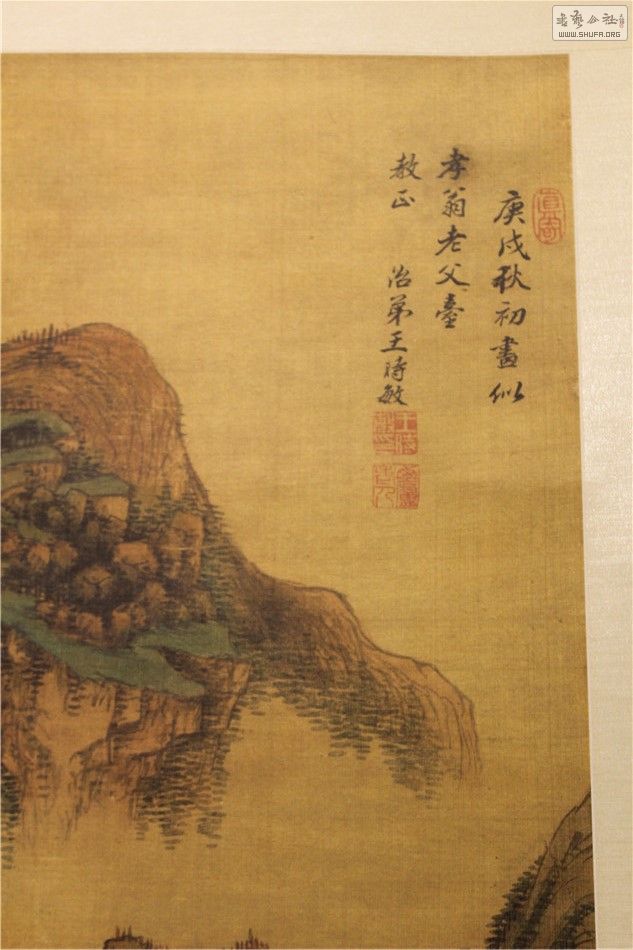 庚戌秋初畫似
孝翁老父臺
教正
治弟王時敏
WWW.SHUFA.ORG